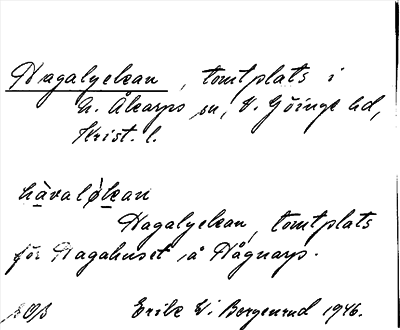 Hagalyckan, tomtplats i
N. Åkarps sn, V. Göinge hd,
Krist. l.
hàvalø̀kan
Hagalyckan, tomtplats
för Hagahuset i å Hågnarp.
Erik V. Borgenrud 1946.